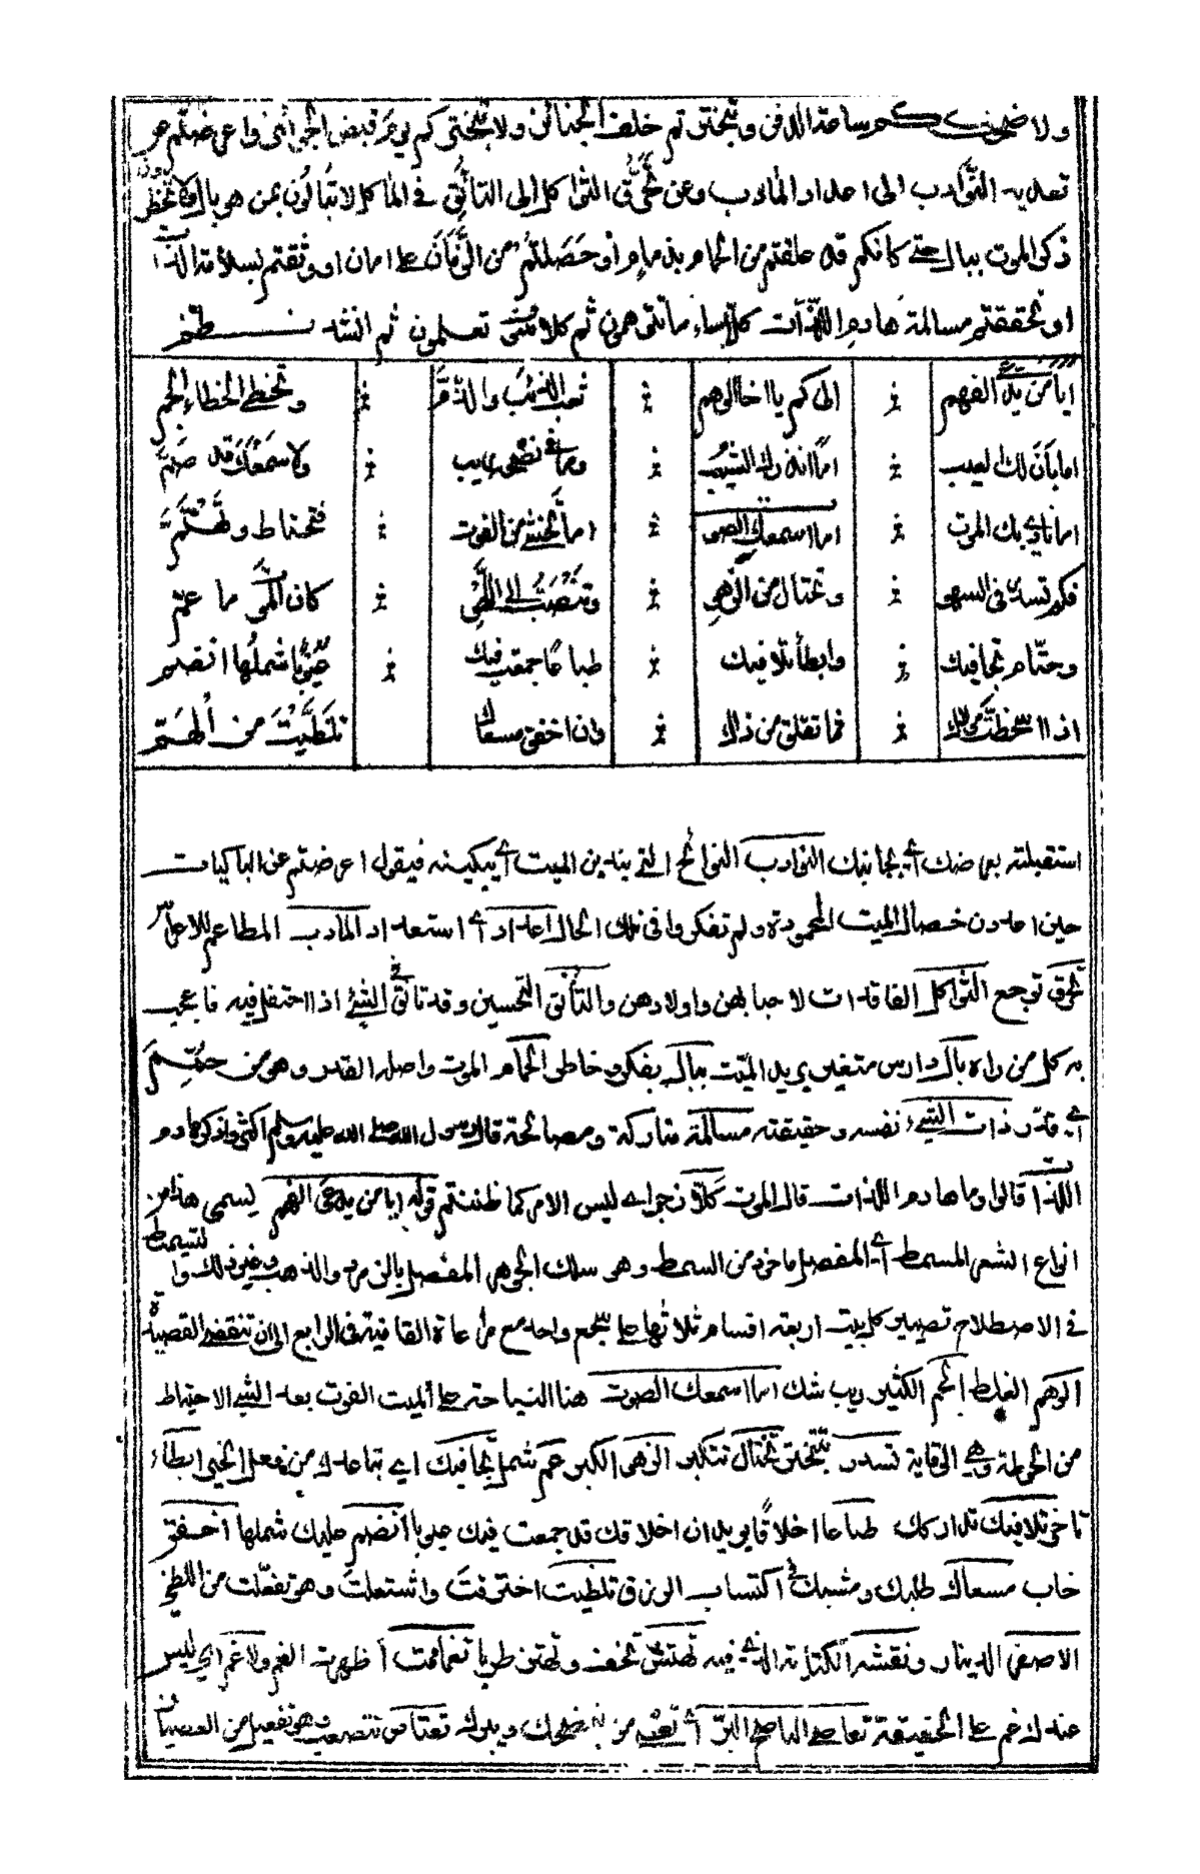 ولا ضحككم ساعة الدفن وتبخترتم خلف الجنائز ولا تبختركم يوم قبض الجوائز واعرضتم عن
تعديد النوادب الى اعداد المآدب وعن تحرق الثواكل الى التأنق في المآكل لا تبالون بمن هو بال ولا تخطرون
ذكر الموت ببال حتى كانكم قد علقتم من الحمام بذمام او حصلتم من الزمان على امان او وثقتم بسلامة الذات
او تحققتم مسالمة هادم اللذات كلا ساء ما تتوهمون ثم كلا سوف تعلمون ثم انشد
ايا من يدعي الفهم ∴ الى كم يا اخا الوهم ∴ تعبي الذنب والذم ∴ وتخطي الخطاء الجم
اما بان لك العيب ∴ اما انذرك الشيب ∴ وما في نصحه ريب ∴ ولا سمعك قد صم
اما نادى بك الموت ∴ اما اسمعك الصوت ∴ اما تخشى من الفوت ∴ فتحتاط وتهتم
فكم تسدر في السهو ∴ وتختال من الزهو ∴ وتنصب الى اللهو ∴ كان الموت ما عم
وحتام تجافيك ∴ وابطاء تلافيك ∴ طباعا جمعت فيك ∴ عيوبا شملها انضم
اذا اسخطت مولاك ∴ فما تقلق من ذاك ∴ وان اخفق مسعاك ∴ تلظيت من الهم
استقبلته بعرضك اي بجانبك النوادب النوائح التي يندبن الميت اي يبكينه فيقول اعرضتم عن الباكيات
حين اعددن خصال الميت المحمودة ولم تفكروا في ذلك الحال اعداد اي استعداد المآدب المطاعم للاعراس
تحرق توجع الثواكل الفاقدات لاحبابهن واولادهن والتأنق التحسين وقد تانق في الشيء اذا احتفل فيه فاعجب
به كل من راه بال دارس متغير يريد الميت ببال بفكر وخاطر الحمام الموت واصله القدر وهو من حم
اي قدر ذات الشيء نفسه وحقيقته مسالمة متاركة ومصالحة قال رسول الله صلى الله عليه وسلم اكثروا ذكر هادم
اللذات قالوا وما هادم اللذات قال الموت كلا زجر اي ليس الامر كما ظننتم قوله ايا من يدعى الفهم يسمى هذا من
انواع الشعر المسمط اي المفصل ماخوذ من السمط وهو سلك الجوهر المفصل بالزمرد والذهب وغير ذلك والتسميط
في الاصطلاح تصيير كل بيت اربعة اقسام ثلاثها على سجع واحد مع مراعاة القافية في الرابع الى ان تنقضي القصيدة
الوهم الغلط الجم الكثير ريب شك اما اسمعك الصوت هنا النياحة على الميت الفوت بعد الشيء الاحتياط
من الحوطة وهي الوقاية تسدر تبختر تختال تتكبر الزهو الكبر عم شمل تجافيك اي تباعدك من فعل الخير ابطاء
تاخر تلافيك تداركك طباعا اخلاقا يريد ان اخلاقك قد جمعت فيك عيوبا انضم عليك شملها اخفق
خاب مسعاك طلبك ومشيك في اكتساب الرزق تلظيت احترقت واشتعلت وهو تفعلت من اللظى
الاصفر الدينار ونقشه الكتابة التي فيه تهتش تخف وتهتز طربا تغاممت اظهرت الغم ولا غم اي ليس
عندك غم على الحقيقة تعاصي الناصح البر اي تعد من ينصحك ويبرك تعتاص تتصعب وهو تفعيل من العصيان